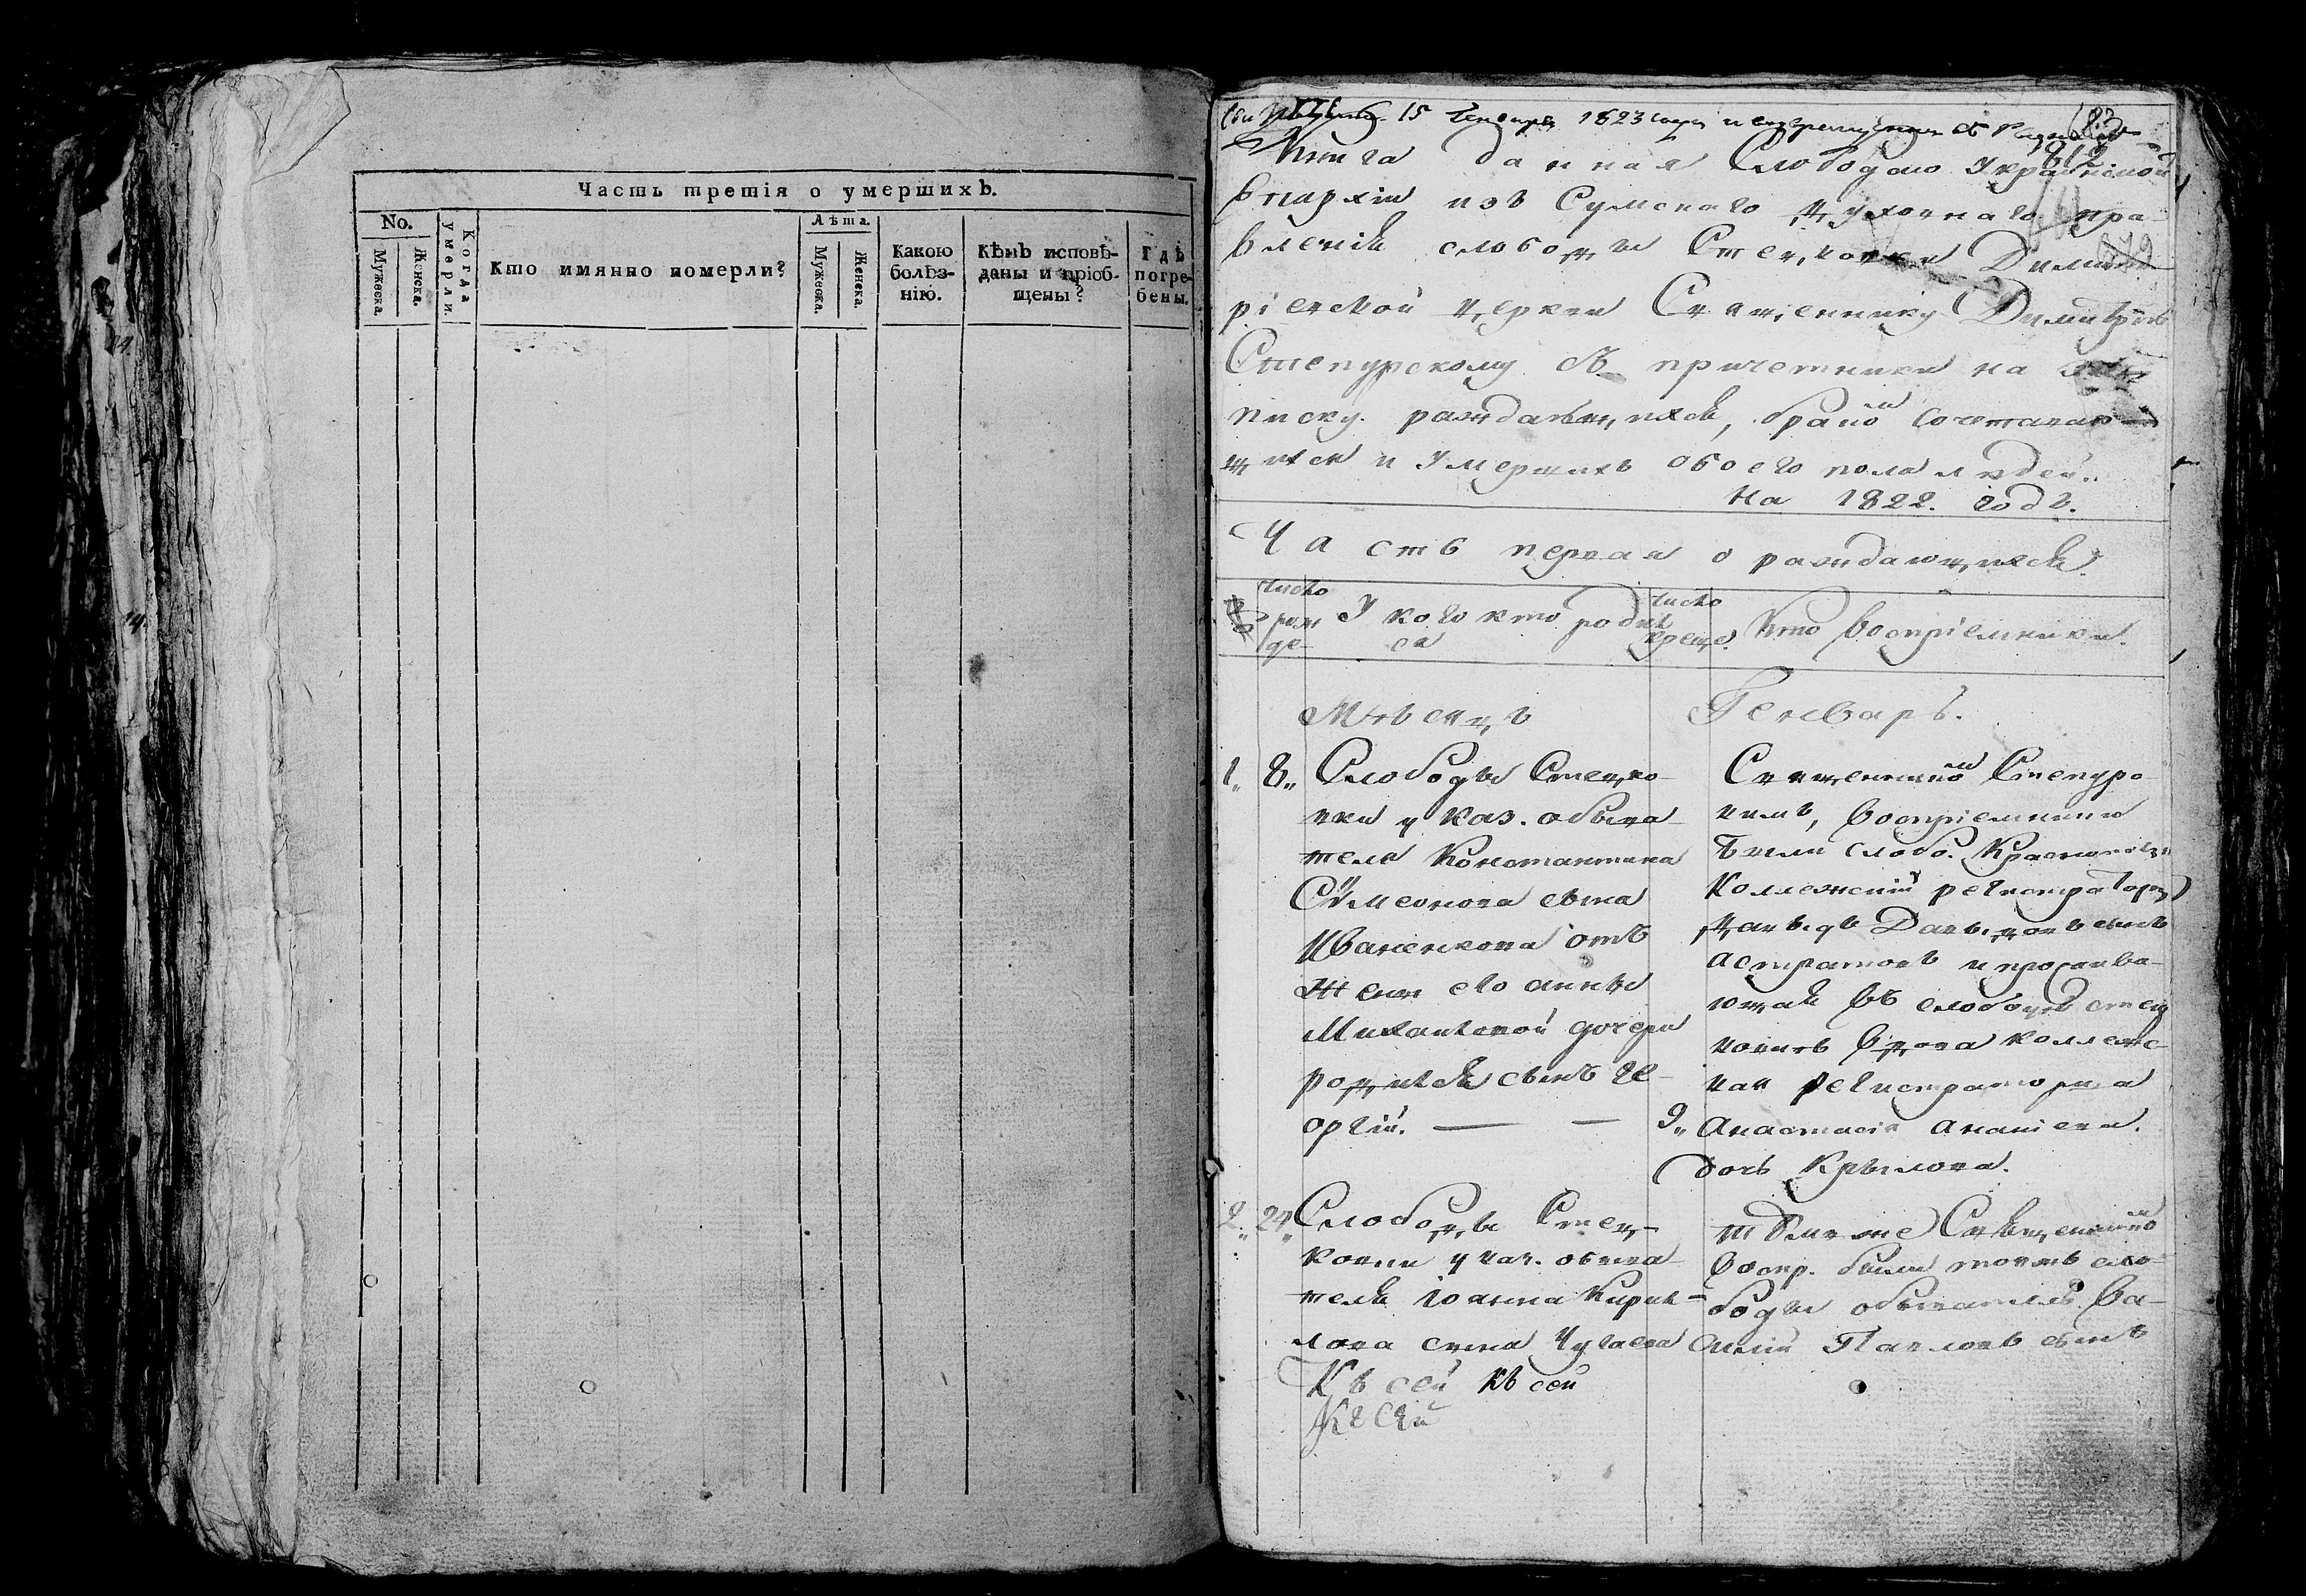 Часть третія о умершихъ.
No.
Мужеска.
Женска.
Когда умерли.
Кто имянно померли?
Лѣта.
Мужеска.
Женска.
Какою болѣз-
нію.
Кѣмъ исповѣ-
даны и пріоб-
щены?
Гдѣ
погре-
бены.
15 Генваря 1823 года и
83
Книга данная Слободско Украинской
Епархіи изъ Сумскаго Духовнаго пра-
вленія слободы Стецковки Димит-
ріевской церкви Священнику Димитрію
Степурскому съ причетники на
писку раждающихся, бракомъ сочетаваю-
щихся и умершихъ обоего пола людей.
На 1822. годъ.
Часть первая о раждающихся.
число
рож
де-
У кого кто родил
ся
число
креще.
Кто воспріемники.
Мѣсяцъ Генварь.
1. 8. Слободы Стецко-
вки у каз. обыва-
теля Константина
Симеонова сына
Иваненкова отъ
жены его анны
Михаиловой дочери
родился сынъ Ге-
оргій. — — 9.
Священникомъ Степурс-
кимъ, воспріемники
были слобо.
Коллежскій регистраторъ
Давыдъ Давыдовъ сынъ
астратовъ и прожива-
ющая въ слободѣ стец
ковкѣ вдова коллежс-
кая регистраторша
Анастасія Ананіева
дочь Крылова.
2. 24. Слободы Стец-
ковки у каз. обыва-
теля Іоанна Кирил-
лова сына Чугаева
Къ сей къ сей
Къ сей
тѣмъ же Священникомъ
воспр. были тояжъ сло-
боды обыватель Ва-
силій Павловъ сынъ